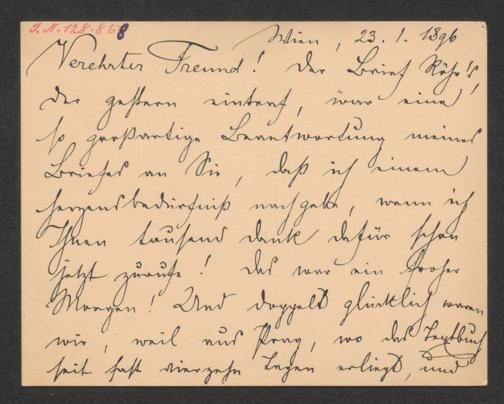 J.N. 128.868
Wien, 23.1.1896
Verehrter Freund! Der Brief Röhr's,
der gestern eintraf, war eine
so großartige Beantwortung meines
Briefes an Sie, daß ich einem
Herzensbedürfniß nachgebe, wenn ich
Ihnen tausend Dank dafür schon
jetzt zurufe! Das war ein froher
Morgen! Und doppelt glücklich waren
wir, weil aus Prag, wo das Textbuch
seit fast vierzehn Tagen erliegt, und